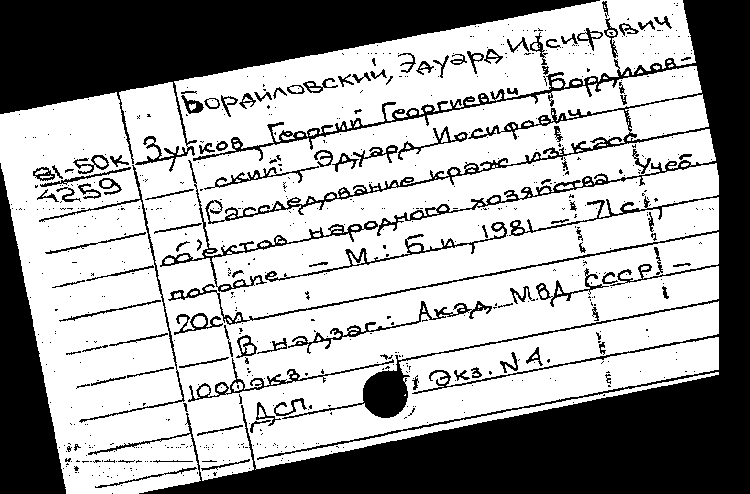 Бордиловский, Эдуард Иосифович
81-50к
4259
Зуйков, Георгий Георгиевич, Бордилов-
ский, Эдуард Иосифович.
Расследование краж из касс
объектов народного хозяйства: Учеб.
пособие. — М.: Б.и, 1981 — 71с.;
20см.
В надзаг.: Акад. МВД СССР —
1000экз.
ДСП. Экз. N4.